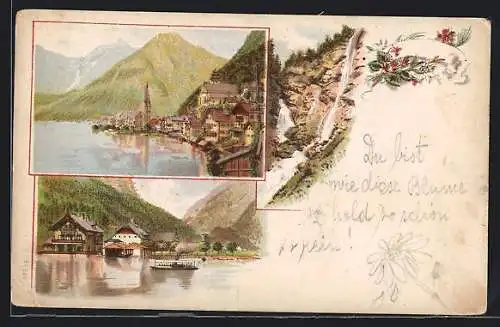 Du bist
wie diese Blume
so hold so schön
so rein!